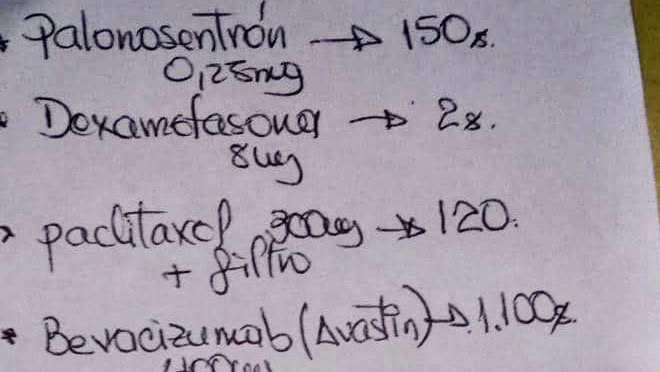 * Palonosentrón → 150$.
0,25mg
• Dexametasona → 2$.
8mg
> paclitaxel 300mg → 120.
+ filtro
* Bevacizumab (Avastin) → 1.100$.
400mg